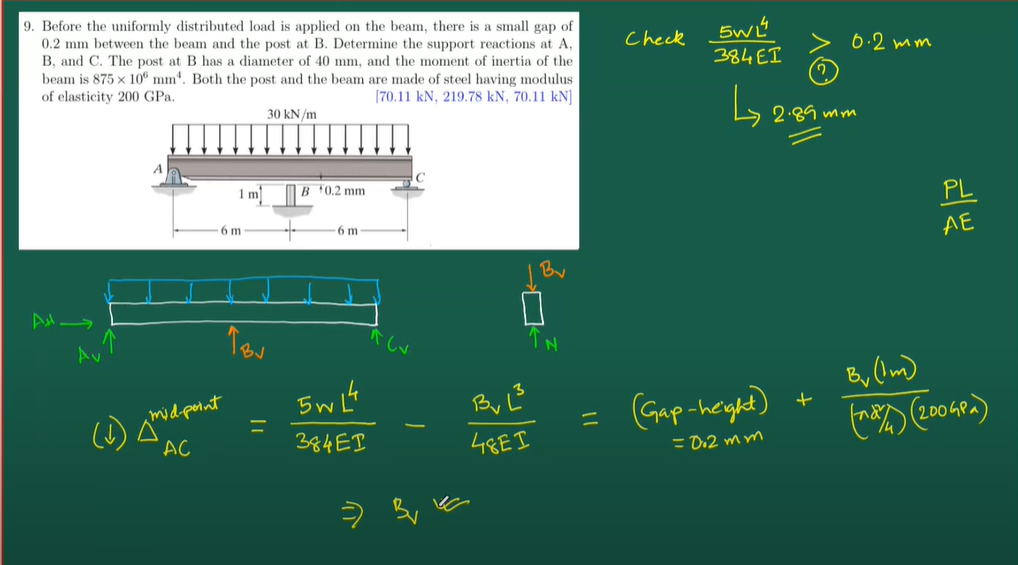 9. Before the uniformly distributed load is applied on the beam, there is a small gap of
0.2 mm between the beam and the post at B. Determine the support reactions at A,
B, and C. The post at B has a diameter of 40 mm, and the moment of inertia of the
beam is 875 × 10⁶ mm⁴. Both the post and the beam are made of steel having modulus
of elasticity 200 GPa. [70.11 kN, 219.78 kN, 70.11 kN]
30 kN/m
A
C
1 m
B
0.2 mm
6 m
6 m
Check 5wL⁴/384EI > 0.2 mm
?
↳ 2.89 mm
PL/AE
AH →
Av ↑
↑ Bv
↑ Cv
↓ Bv
↑ N
(↓) Δ mid-point AC = 5wL⁴/384EI − BvL³/48EI = (Gap-height) + Bv(1m)/(πd²/4)(200GPa)
= 0.2 mm
⇒ Bv